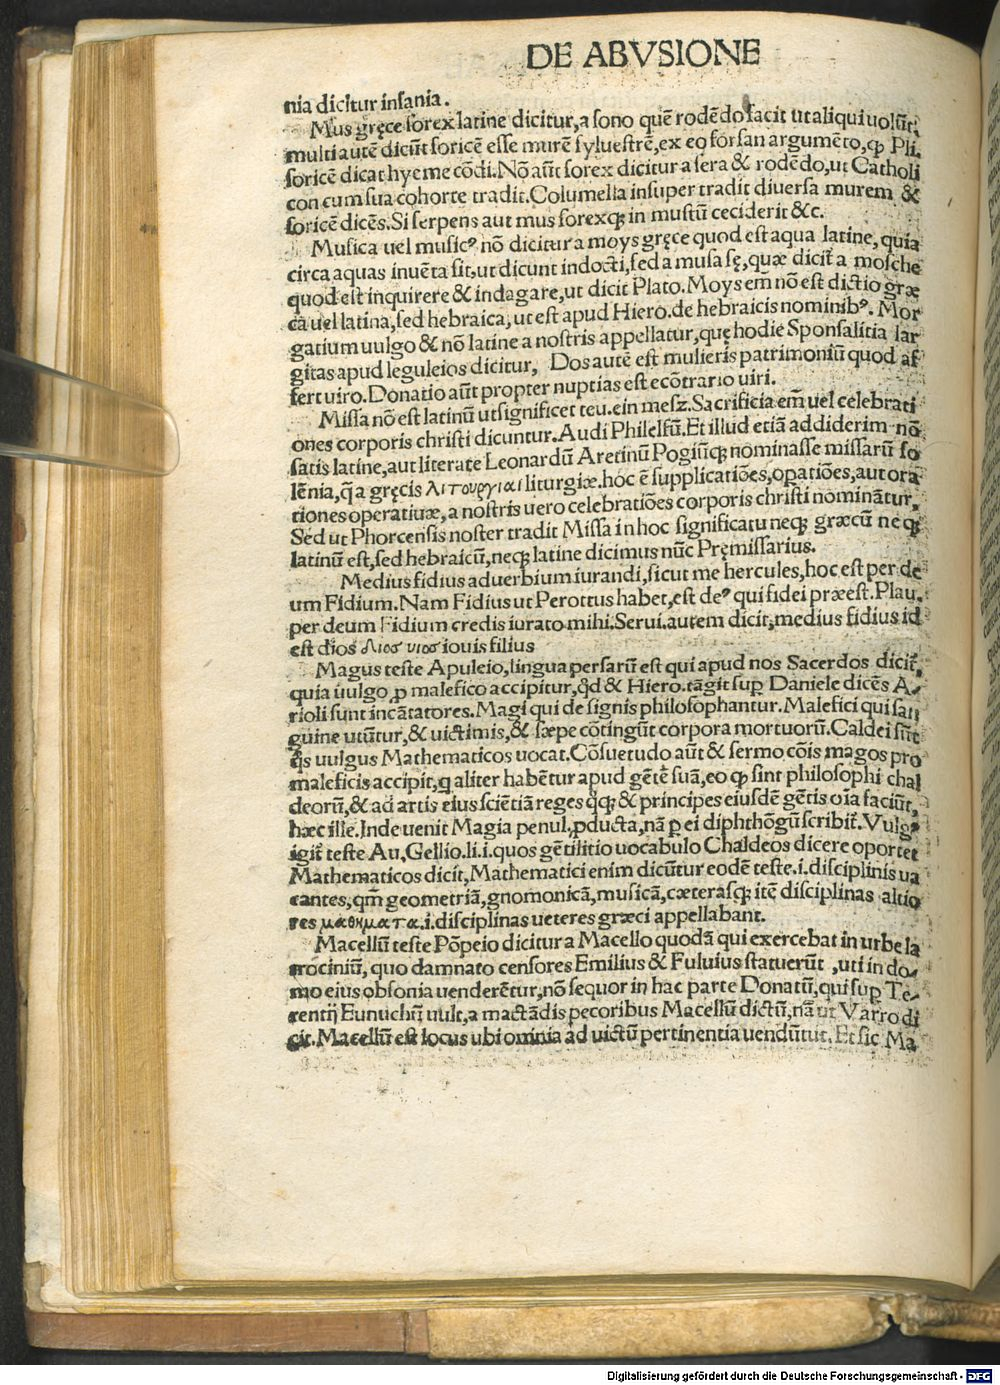 DE ABVSIONE
nia dicitur insania.
Mus gręce sorex latine dicitur, a sono quē rodēdo facit ut aliqui uolūt,
multi autē dicūt soricē esse murē syluestrē, ex eo forsan argumēto, ꝙ Pli.
soricē dicat hyeme cōdi. Nō aūt sorex dicitur a sera & rodēdo, ut Catholi
con cum sua cohorte tradit. Columella insuper tradit diuersa murem &
soricē dicēs. Si serpens aut mus sorexqꝫ in mustū ceciderit &c.
Musica uel musicꝰ nō dicitur a moys gręce quod est aqua latine, quia
circa aquas inuēta sit, ut dicunt indocti, sed a musa sę, quæ dicit̄ a mosche
quod est inquirere & indagare, ut dicit Plato. Moys em nō est dictio græ
ca uel latina, sed hebraica, ut est apud Hiero. de hebraicis nominibꝰ. Mor
gatium uulgo & nō latine a nostris appellatur, quę hodie Sponsalitia lar
gitas apud leguleios dicitur, Dos autē est mulieris patrimoniū quod af
fert uiro. Donatio aūt propter nuptias est ecōtrario uiri.
Missa nō est latinū ut significet teu. ein mesz. Sacrificia em̄ uel celebrati
ones corporis christi dicuntur. Audi Philelfū. Et illud etiā addiderim nō
satis latine, aut literate Leonardū Aretinū Pogiūqꝫ nominasse missarū so
lēnia, q̄a gręcis λιτουργιαι liturgiæ. hoc ē supplicatiōes, opatiōes, aut ora
tiones operatiuæ, a nostris uero celebratiōes corporis christi nominātur,
Sed ut Phorcensis noster tradit Missa in hoc significatu neqꝫ græcū neqꝫ
latinū est, sed hebraicū, neqꝫ latine dicimus nūc Pręmissarius.
Medius fidius aduerbium iurandi, sicut me hercules, hoc est per de
um Fidium. Nam Fidius ut Perottus habet, est deꝰ qui fidei præest. Plau.
per deum Fidium credis iurato mihi. Serui. autem dicit, medius fidius id
est dios διοσ υιοσ iouis filius
Magus teste Apuleio, lingua persarū est qui apud nos Sacerdos dicit̄,
quia uulgo ꝓ malefico accipitur, qd̄ & Hiero. tāgit suꝑ Daniele dicēs A⸗
rioli sunt incātatores. Magi qui de signis philosophantur. Malefici qui san
guine utūtur, & uictimis, & sæpe cōtingūt corpora mortuorū. Caldei sūt
q̄s uulgus Mathematicos uocat. Cōsuetudo aūt & sermo cōis magos pro
maleficis accipit, q aliter habētur apud gētē suā, eo ꝙ sint philosophi chal
deorū, & ad artis eius sciētiā reges qqꝫ & principes eiusdē gētis oīa faciūt,
hæc ille. Inde uenit Magia penul. ꝓducta, nā ꝑ ei diphthōgū scribit̄. Vulgꝰ
igit̄ teste Au. Gellio. li. i. quos gētilitio uocabulo Chaldeos dicere oportet
Mathematicos dicit, Mathematici enim dicūtur eodē teste. i. disciplinis ua
cantes, qm̄ geometriā, gnomonicā, musicā, cæterasqꝫ itē disciplinas altio
res μαθηματα. i. disciplinas ueteres græci appellabant.
Macellū teste Pōpeio dicitur a Macello quodā qui exercebat in urbe la
trociniū, quo damnato censores Emilius & Fuluius statuerūt, uti in do⸗
mo eius obsonia uenderētur, nō sequor in hac parte Donatū, qui suꝑ Te⸗
rentij Eunuchū uult, a mactādis pecoribus Macellū dictū, nā ut Varro di
cit. Macellū est locus ubi omnia ad uictū pertinentia uendūtur. Et sic Ma
Digitalisierung gefördert durch die Deutsche Forschungsgemeinschaft - DFG